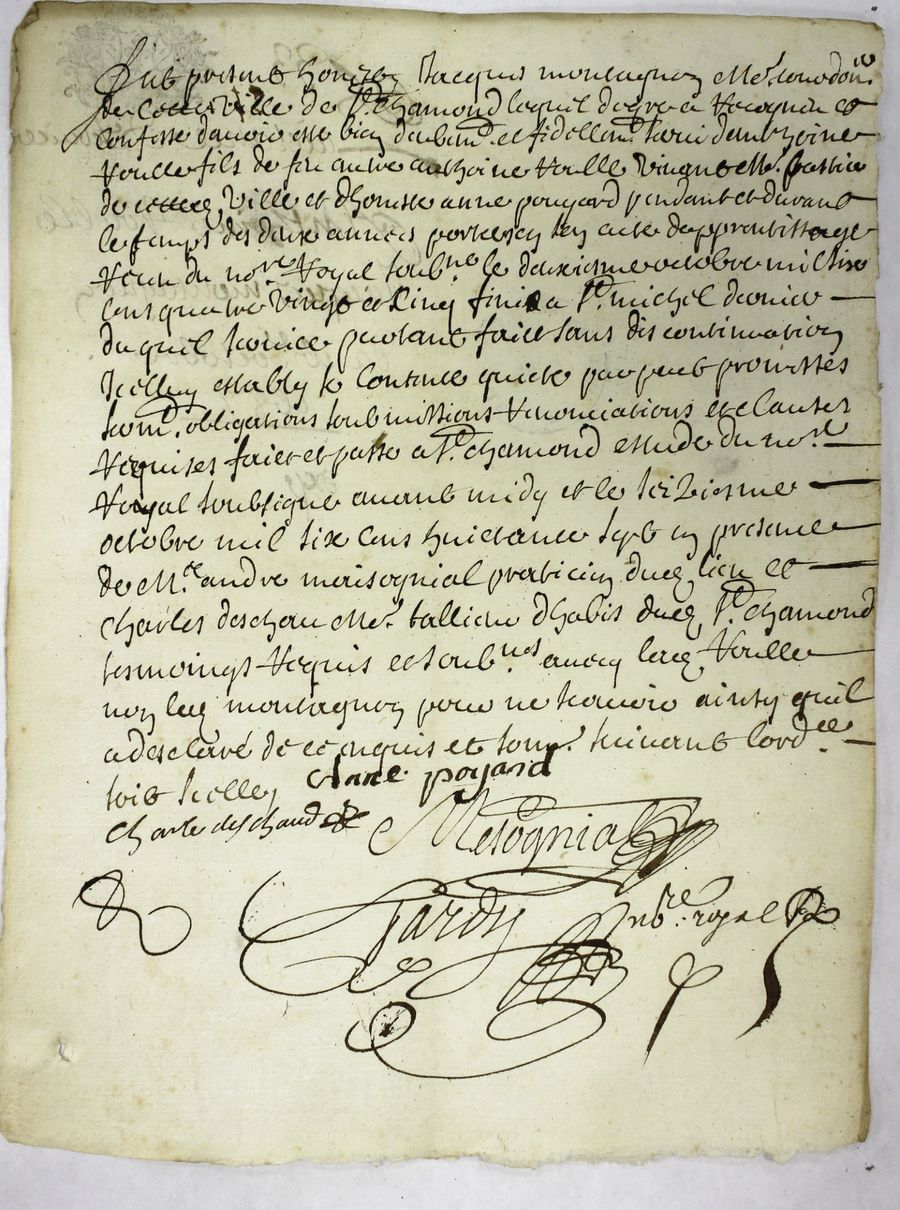 Fut present honneste Jacques montagnon Me. cordon.er
de cette Ville de St. chamond lequel de gré a Recognu et
Confesse davoir esté bien deubmt. et fidellemt. servi danthoine
Roulle fils de feu autre anthoine Roulle Vivant Me. patticie
de cettez Ville et dhoneste anne poyard pendant et durant
le temps des deux annees portees en son acte dapprentissage
Receu du nore. Royal soubne. le deuxiesme octobre mil six
Cens quatre Vingt et Cinq finis a St. michel dernier
duquel service partant faict sans discontinuation
Icelluy estably se Contente quicte par part promesses
serm.t obligations soubmissions Renonciations et clauses
Requises faict et passe a St. chamond estude du nore.
Royal soubsigne avant midy et le seiziesme
octobre mil six Cens huictante sept en presence
de Me. andre moisognial praticien dud. lieu et
Charles deschau Me. tallieur dhabis dud. St. chamond
tesmoings Requis et soub.nes avec lad. Roulle
non led. montagnon pour ne scavoir ainsy quil
a desclaré de ce enquis et som.e suivant lord.ce
soit scellé Anne poyard
Charle deschaud
Mesognial
Tardy nore. royal R